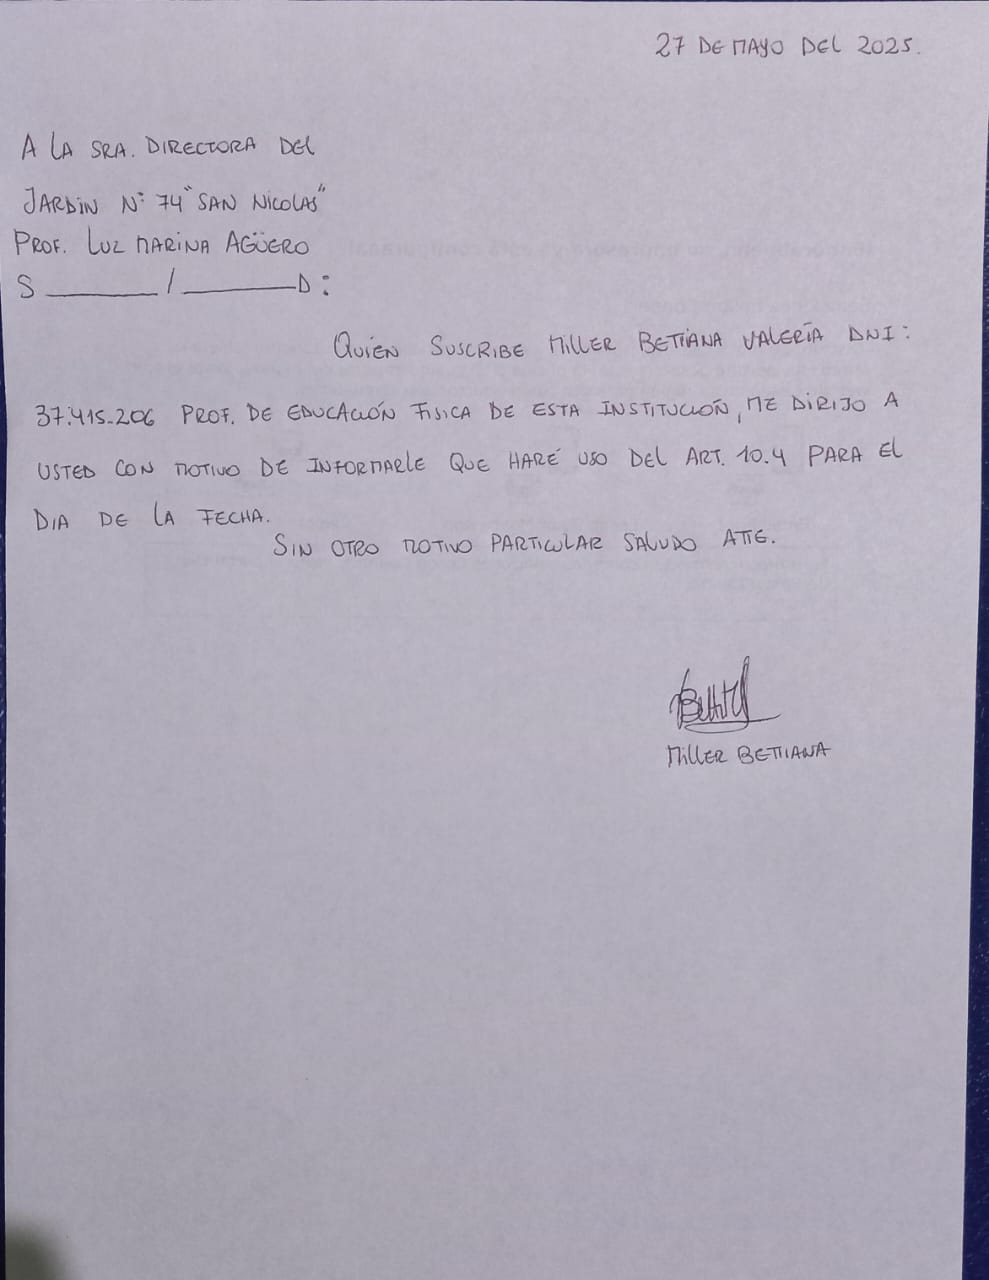 27 DE MAYO DEL 2025.
A LA SRA. DIRECTORA DEL
JARDIN N° 74 "SAN NICOLAS"
PROF. LUZ MARINA AGÜERO
S ________ / ________ D :
QUIEN SUSCRIBE MILLER BETIANA VALERÍA DNI:
37.415.206 PROF. DE EDUCACIÓN FISICA DE ESTA INSTITUCIÓN, ME DIRIJO A
USTED CON MOTIVO DE INFORMARLE QUE HARÉ USO DEL ART. 10.4 PARA EL
DIA DE LA FECHA.
SIN OTRO MOTIVO PARTICULAR SALUDO ATTE.
MILLER BETIANA